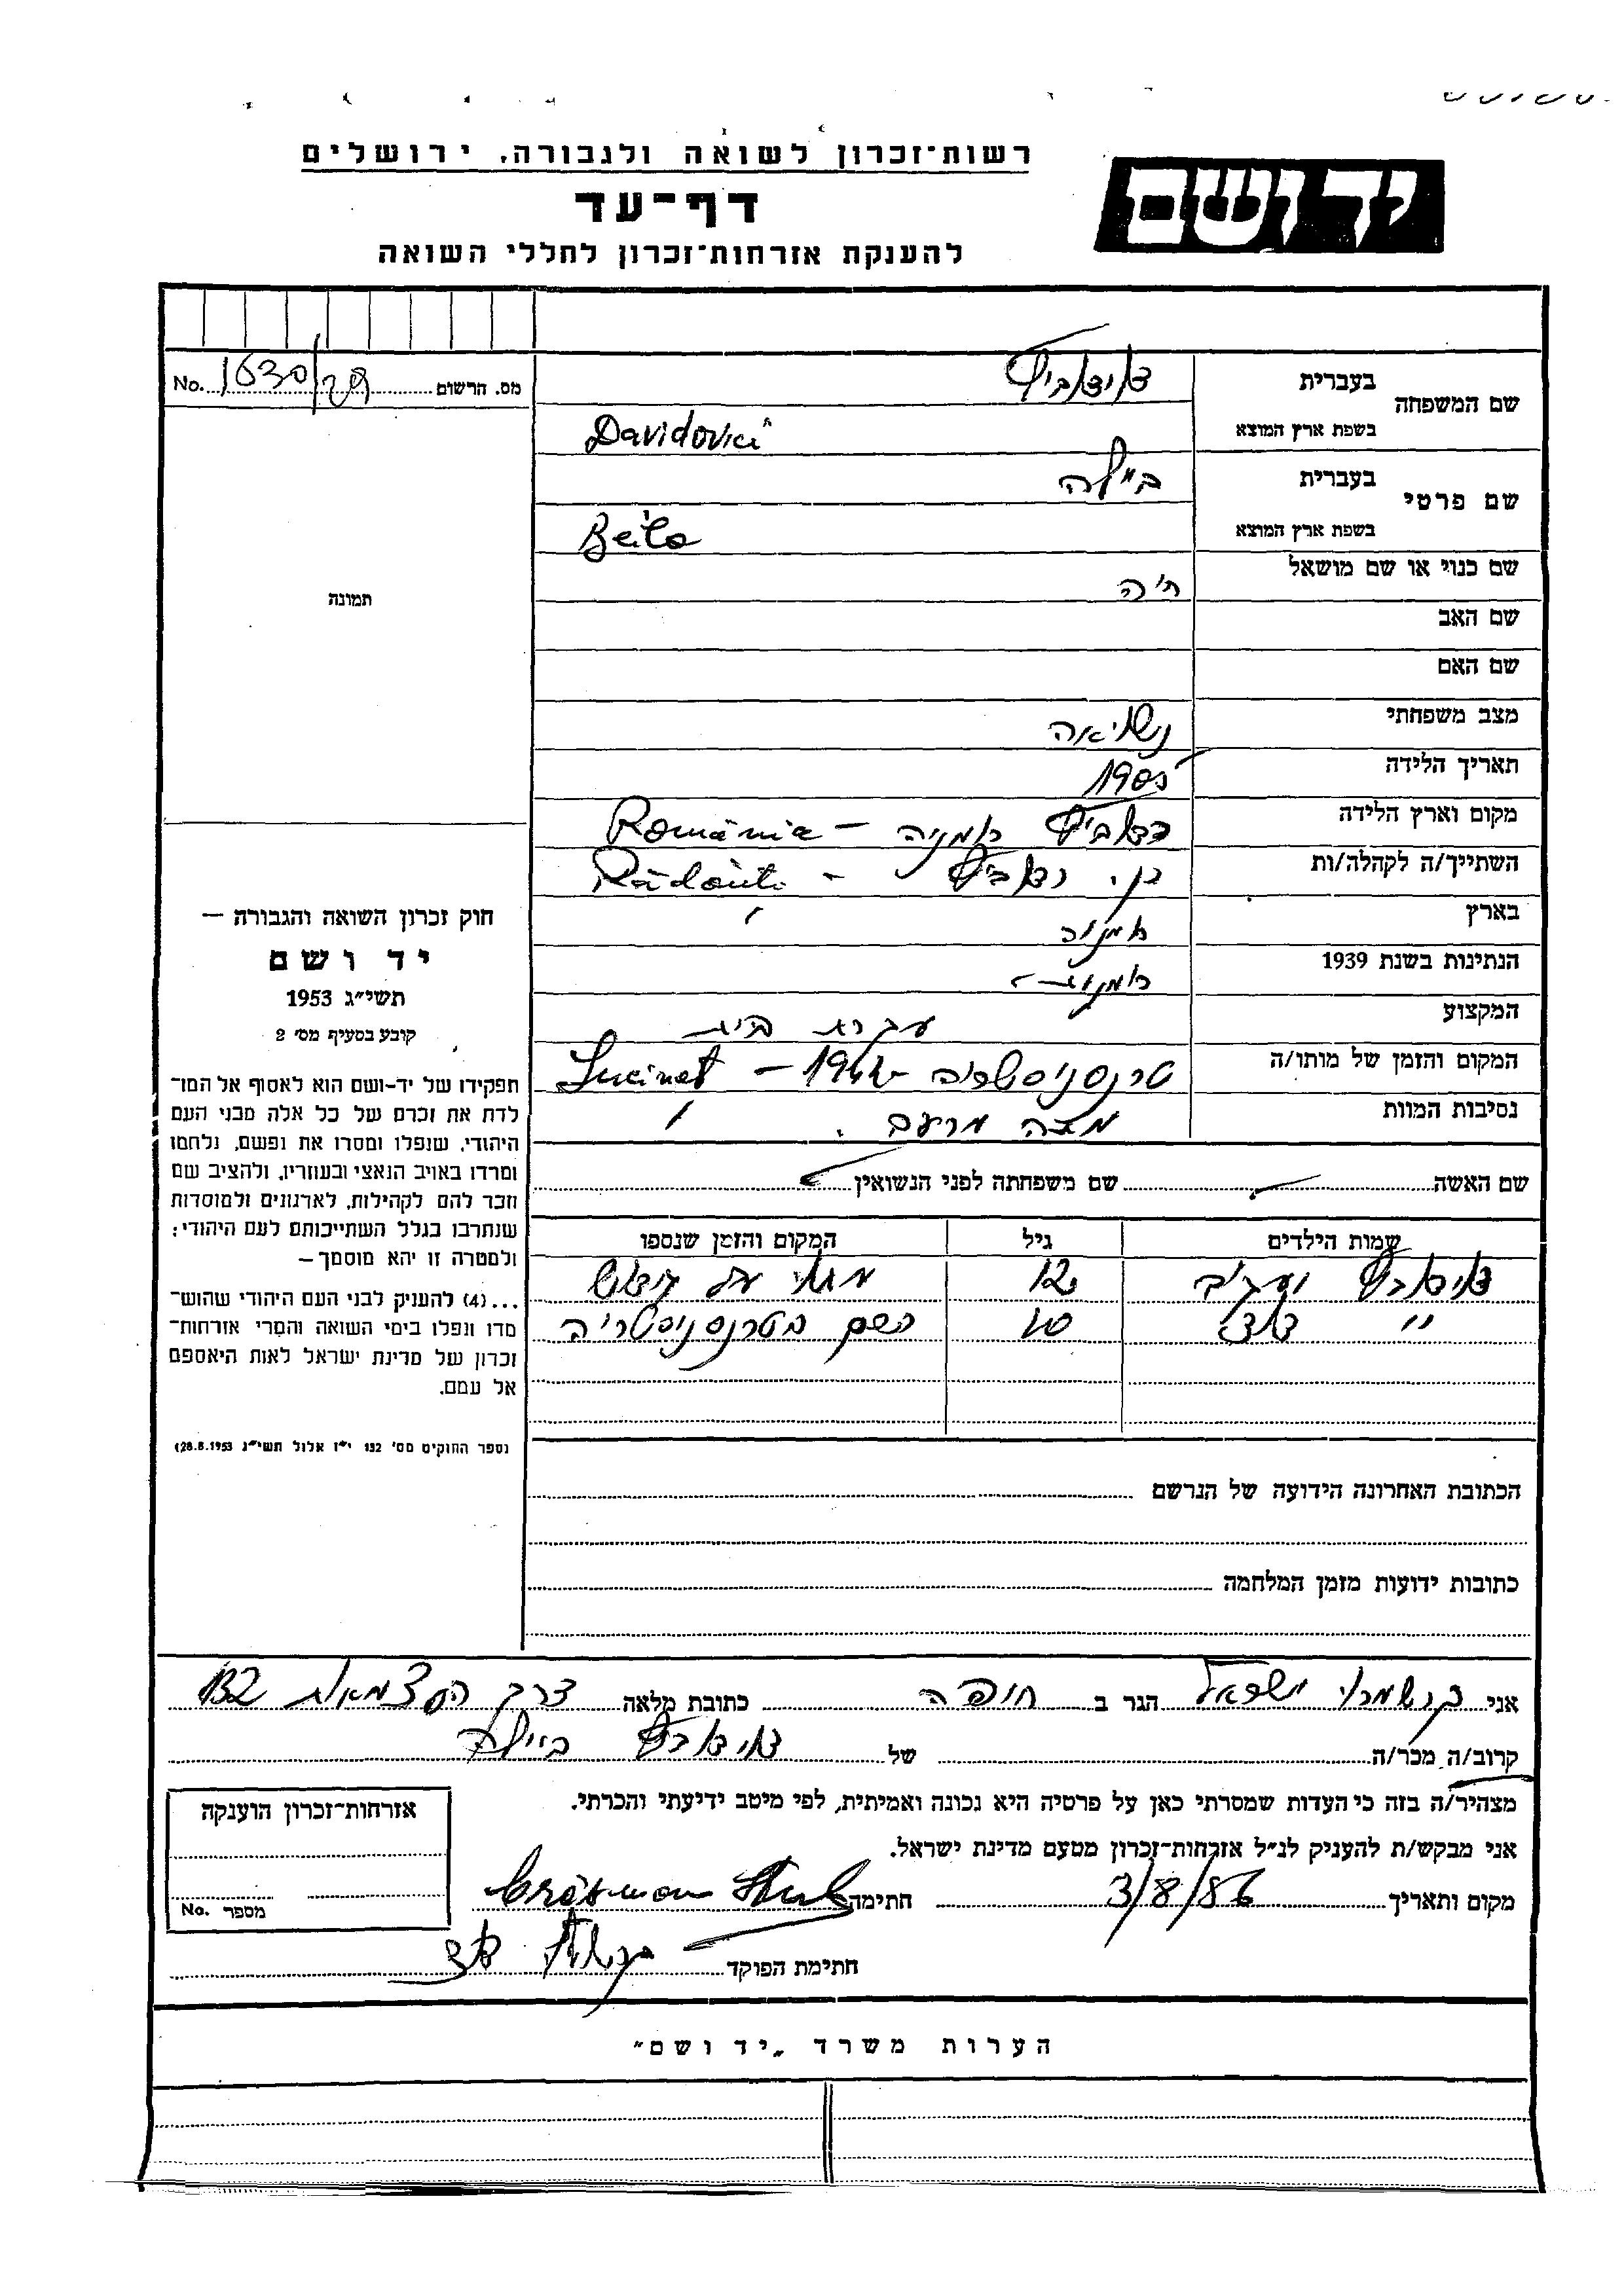 רשות־זכרון לשואה ולגבורה, ירושלים
יד ושם
דף־עד
להענקת אזרחות־זכרון לחללי השואה
מס. הרשום No.
שם המשפחה בעברית דוידוביץ
בשפת ארץ המוצא Davidovici
שם פרטי בעברית ביילה
בשפת ארץ המוצא Beila
שם כנוי או שם מושאל חיה
תמונה
שם האב
שם האם
מצב משפחתי נשואה
תאריך הלידה 1905
מקום וארץ הלידה רדאוביץ רומניה - România
השתייך/ה לקהלה/ות רדאוביץ - Rădăuți
בארץ רומניה
הנתינות בשנת 1939 רומנית
המקצוע עקרת בית
המקום והזמן של מותו/ה טרנסניסטריה 1942 - Lucineț
נסיבות המוות מתה מרעב.
שם האשה שם משפחתה לפני הנשואין
שמות הילדים גיל המקום והזמן שנספו
דוידוביץ 12
" דוד 10 השם בטרנסניסטריה
חוק זכרון השואה והגבורה —
יד ושם
תשי״ג 1953
קובע בסעיף מס׳ 2
תפקידו של יד-ושם הוא לאסוף אל המו־
לדת את זכרם של כל אלה מבני העם
היהודי, שנפלו ומסרו את נפשם, נלחמו
ומרדו באויב הנאצי ובעוזריו, ולהציב שם
וזכר להם לקהילות, לארגונים ולמוסדות
שנחרבו בגלל השתייכותם לעם היהודי;
ולמטרה זו יהא מוסמך —
...(4) להעניק לבני העם היהודי שהוש־
מדו ונפלו בימי השואה והמרי אזרחות־
זכרון של מדינת ישראל לאות היאספם
אל עמם.
(ספר החוקים מס׳ 132 י״ז אלול תשי״ג 28.8.1953)
הכתובת האחרונה הידועה של הנרשם
כתובות ידועות מזמן המלחמה
אני ישראל הגר ב חיפה כתובת מלאה דרך העצמאות 132
קרוב/ה מכר/ה של דוידוביץ ביילה
מצהיר/ה בזה כי העדות שמסרתי כאן על פרטיה היא נכונה ואמיתית, לפי מיטב ידיעתי והכרתי.
אני מבקש/ת להעניק לנ״ל אזרחות־זכרון מטעם מדינת ישראל.
מקום ותאריך 3/8/86 חתימה
חתימת הפוקד
אזרחות־זכרון הוענקה
מספר No.
הערות משרד „יד ושם״